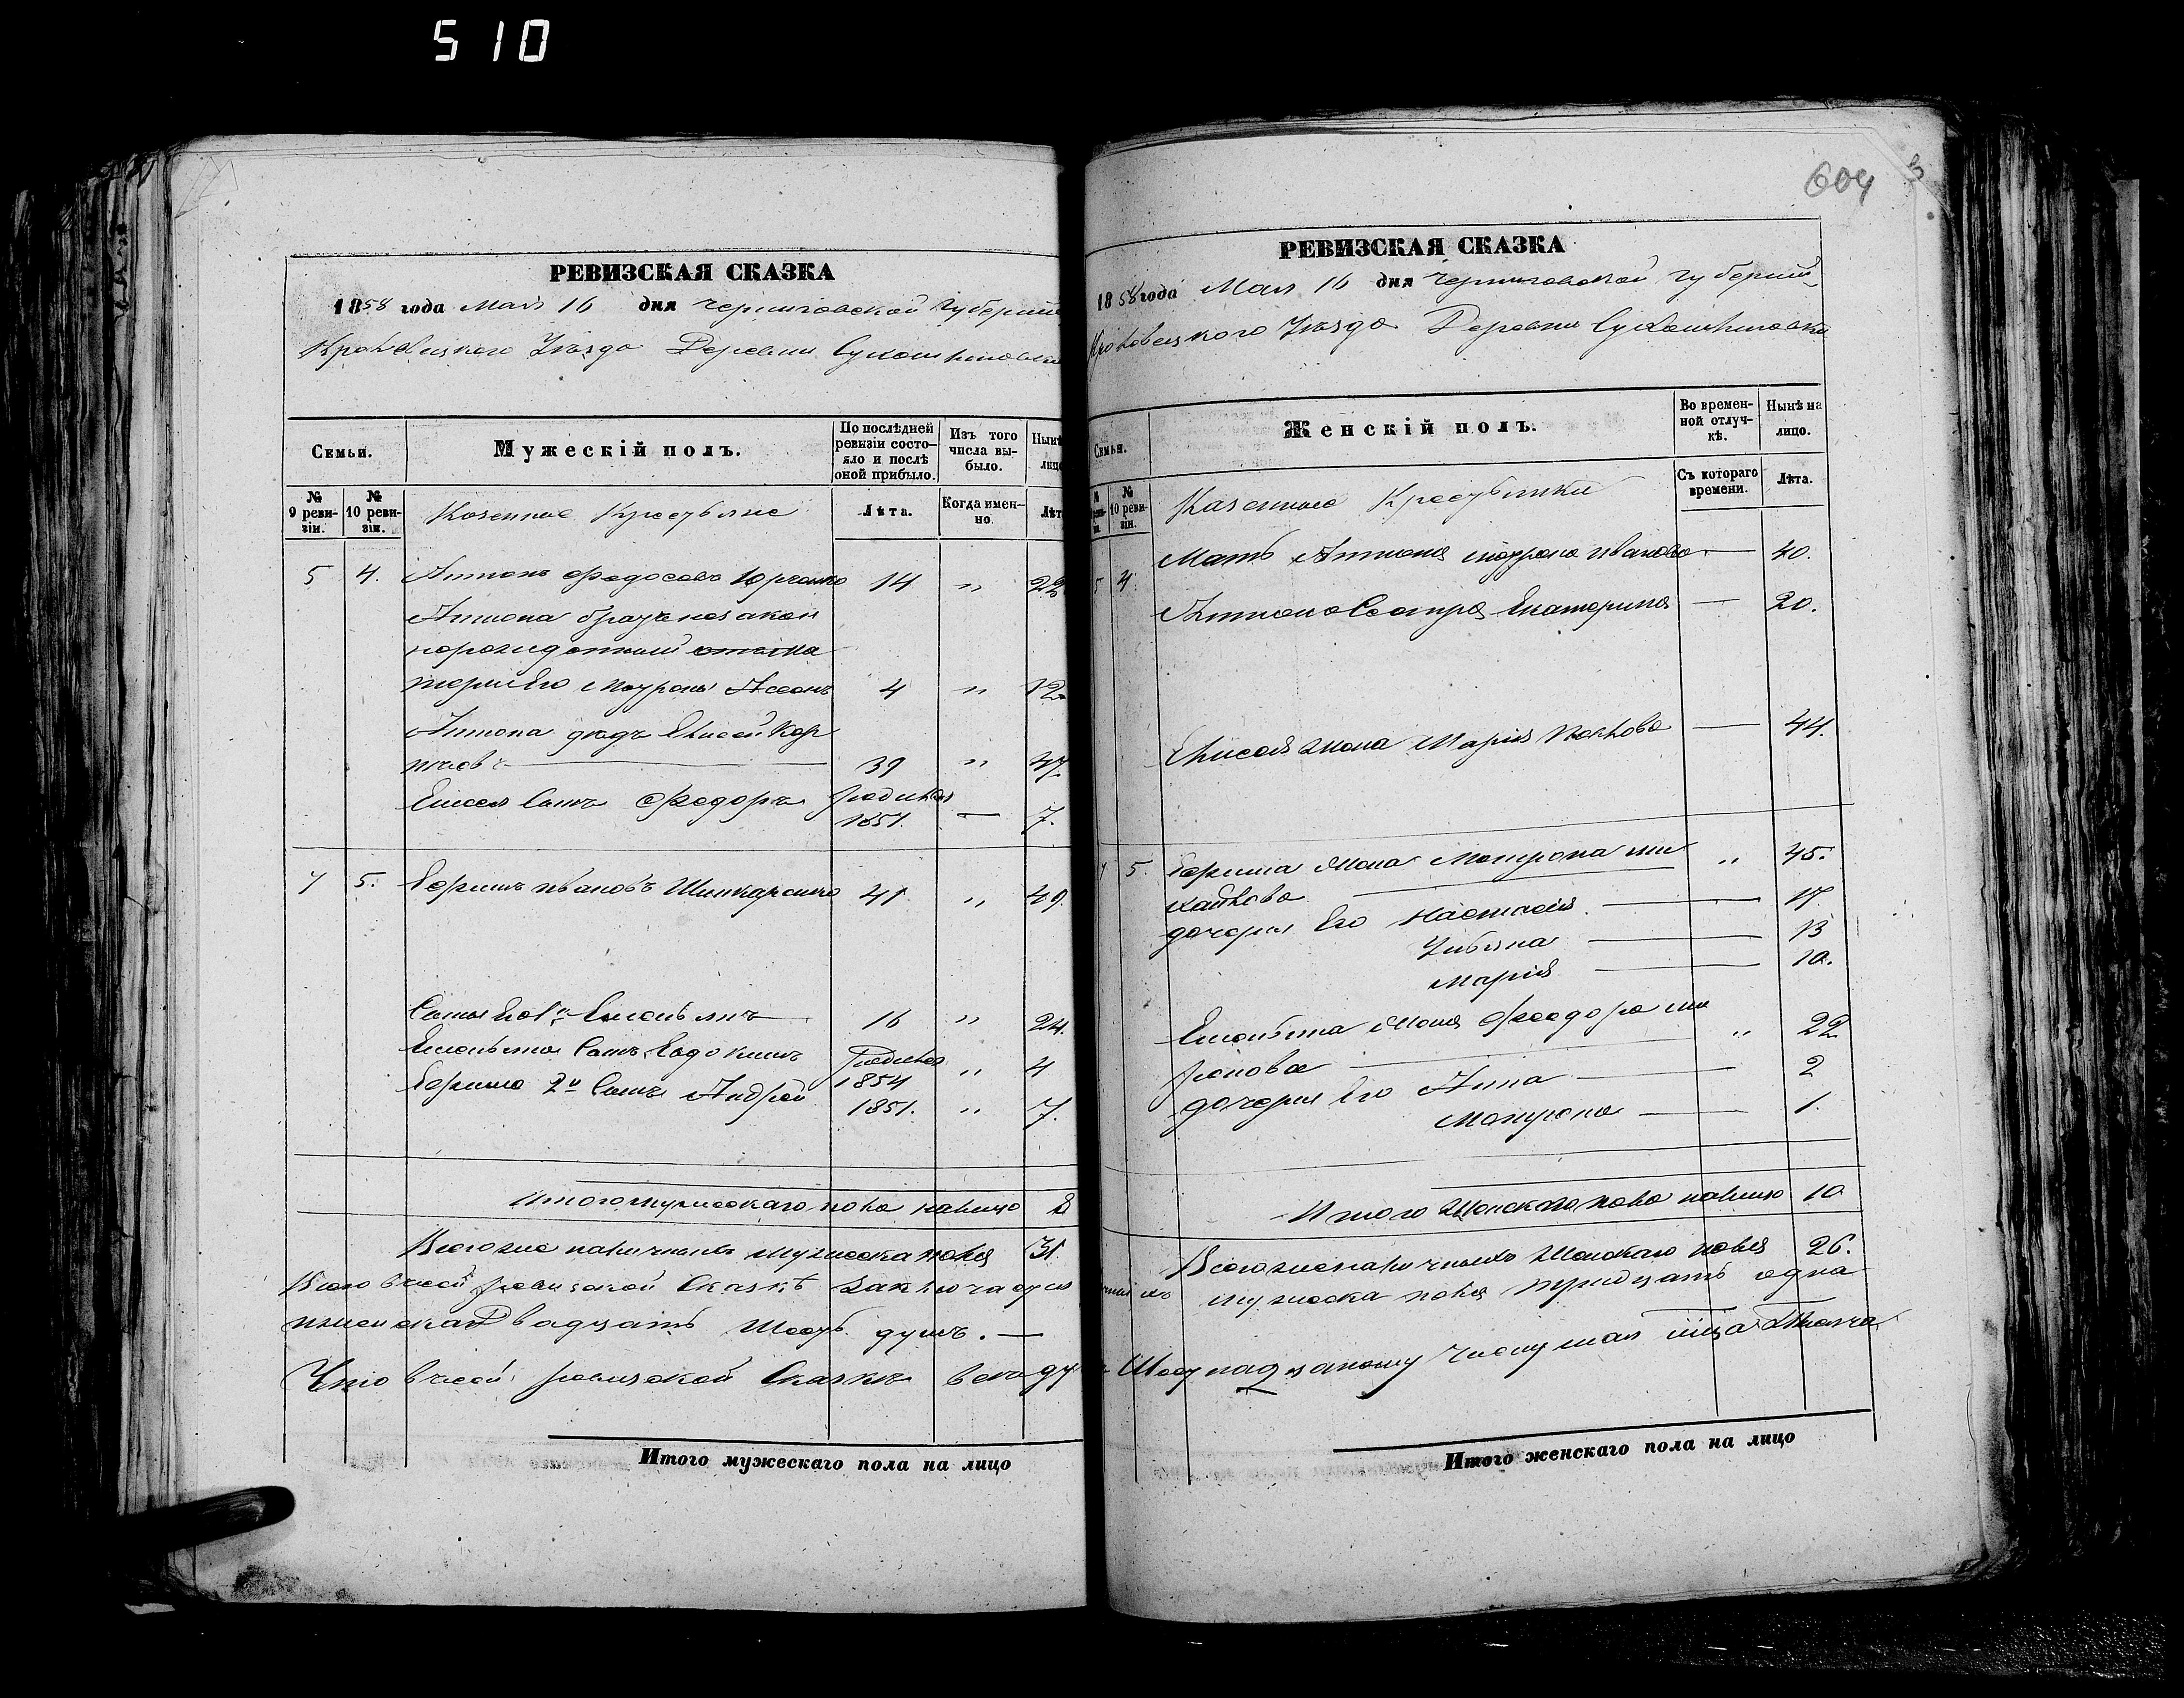 510
РЕВИЗСКАЯ СКАЗКА
1858 года Мая 16 дня Черниговской Губернии
Кролевецкого Уезда Деревни
Семьи.
Мужескій полъ.
По послѣдней ревизіи состо-
яло и послѣ
оной прибыло.
Изъ того
числа вы-
было.
Нынѣ
лицо
№
9 реви-
зіи.
№
10 реви-
зіи.
Казенные Крестьяне
Лѣта.
Когда имен-
но.
Лѣт
5 4. Антонъ Федосовъ Юрченко 14 " 22
Антона братъ незакон
норожденный
тери Его Мотроны 4 " 12
Антона дядя Елисей Кор
нѣевъ 39 " 47
Елисея Сынъ Федоръ родился
1851. — 7.
7 5. Ефимъ Ивановъ Шинкаренко 41 " 49.
Сыны Его 1й Емельянъ 16 " 24.
Емельяна Сынъ Евдокимъ родился
1854 " 4
Ефима 2й Сынъ Андрей 1851. " 7.
Итого мужескаго пола налицо 8
Всего же наличныхъ мужеска пола 31.
Всего в сей ревизской Сказкѣ заключается
и женска Двадцать Шесть душъ. —
Что в сей ревизской Сказкѣ
Итого мужескаго пола на лицо
604
3
РЕВИЗСКАЯ СКАЗКА
1858 года Мая 16 дня Черниговской Губернии
Кролевецкого Уезда Деревни
Семьи.
Женскій полъ.
Во времен-
ной отлуч-
кѣ.
Нынѣ на
лицо.
№
10 реви-
зіи.
Казенные Крестьянки
Съ котораго
времени.
Лѣта.
5 4. Мать Антона Мотрона Иванова — 40.
Антона Сестра Екатерина — 20.
Елисея жена Марія — 44.
7 5. Ефима жена Мотрона Ми " 45.
хайлова
дочери Его Настасія — 17
Ульяна — 13
Марія — 10.
Емельяна жена Феодора Ми " 22
ронова
дочери Его Анна — 2
Мотрона — 1.
Итого Женскаго пола налицо 10
Всего же наличныхъ Женскаго пола 26.
мужеска пола тридцать одна
Итого женскаго пола на лицо